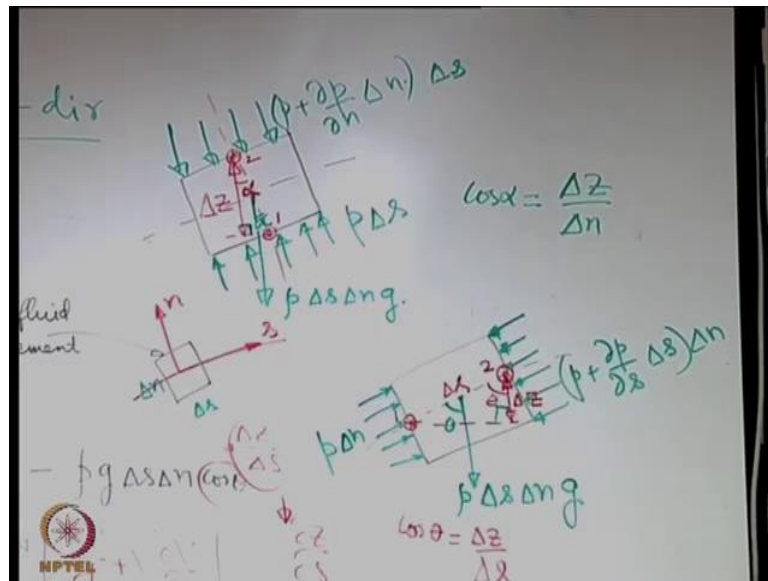 -dir
(p + ∂p/∂n Δn) Δs
2
ΔZ
α
α
1
pΔs
cosα = ΔZ/Δn
ρ Δs Δn g.
fluid
ement
n
s
Δn
Δs
(p + ∂p/∂s Δs) Δn
2
Δs
θ
ΔZ
1
θ
pΔn
ρ Δs Δn g
- ρg Δs Δn (cos
Δs
cosθ = ΔZ/Δs
∂z
∂s
NPTEL